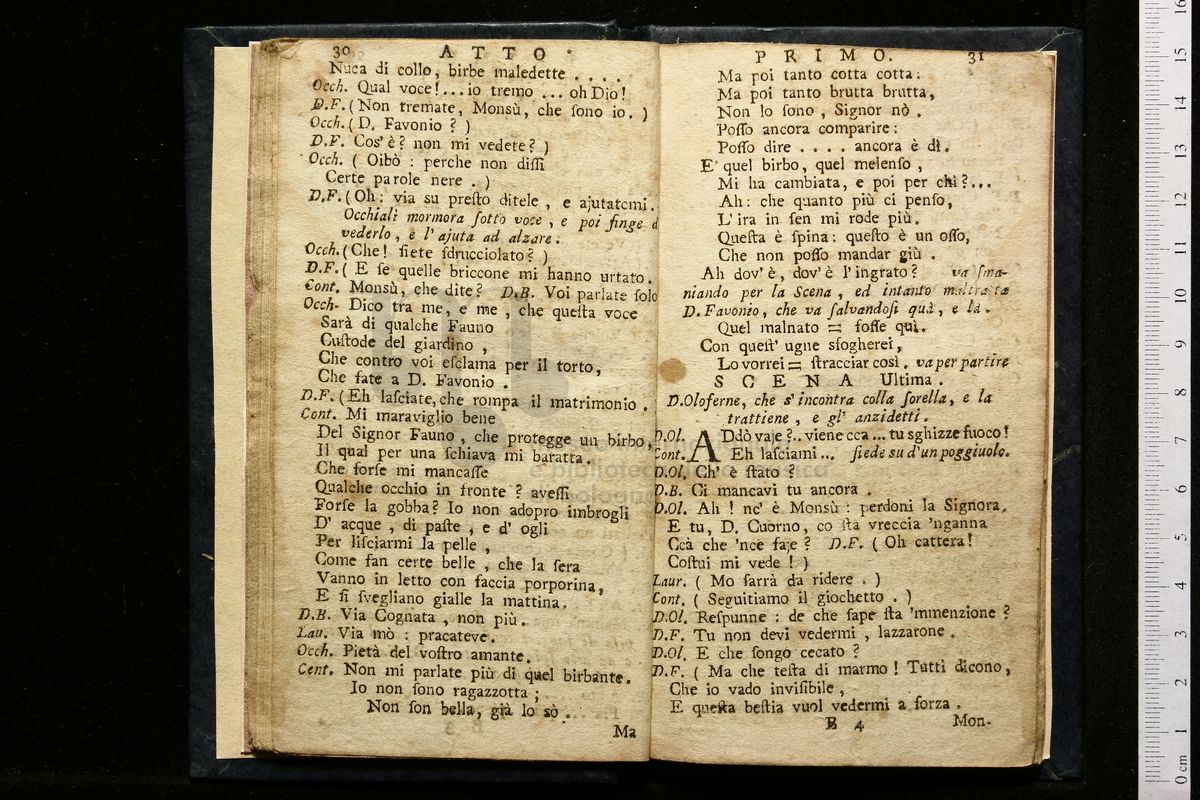 30 ATTO
Nuca di collo, birbe maledette ....
Occh. Qual voce!...io tremo ... oh Dio!
D.F. (Non tremate, Monsù, che ſono io.)
Occh. (D. Favonio?)
D.F. Cos'è? non mi vedete?)
Occh. (Oibò: perche non diſſi
Certe parole nere.)
D.F. (Oh: via su preſto ditele, e ajutatemi.
Occhiali mormora ſotto voce, e poi finge d
vederlo, e l'ajuta ad alzare.
Occh. (Che! ſiete ſdrucciolato?)
D.F. (E ſe quelle briccone mi hanno urtato.
Cont. Monsù, che dite? D.B. Voi parlate ſolo
Occh- Dico tra me, e me, che queſta voce
Sarà di qualche Fauno
Cuſtode del giardino,
Che contro voi eſclama per il torto,
Che fate a D. Favonio.
D.F. (Eh laſciate, che rompa il matrimonio.
Cont. Mi maraviglio bene
Del Signor Fauno, che protegge un birbo,
Il qual per una ſchiava mi baratta.
Che forſe mi mancaſſe
Qualche occhio in fronte? aveſſi
Forſe la gobba? Io non adopro imbrogli
D'acque, di paſte, e d'ogli
Per liſciarmi la pelle,
Come fan certe belle, che la ſera
Vanno in letto con faccia porporina,
E ſi ſvegliano gialle la mattina.
D.B. Via Cognata, non più.
Lau. Via mò: pracateve.
Occh. Pietà del voſtro amante.
Cont. Non mi parlate più di quel birbante.
Io non ſono ragazzotta;
Non ſon bella, già lo sò.
Ma
PRIMO. 31
Ma poi tanto cotta cotta:
Ma poi tanto brutta brutta,
Non lo ſono, Signor nò.
Poſſo ancora comparire:
Poſſo dire .... ancora è dì.
E' quel birbo, quel melenſo,
Mi ha cambiata, e poi per chi?...
Ah: che quanto più ci penſo,
L'ira in ſen mi rode più.
Queſta è ſpina: queſto è un oſſo,
Che non poſſo mandar giù.
Ah dov'è, dov'è l'ingrato? va ſma-
niando per la Scena, ed intanto maltratta
D. Favonio, che va ſalvandoſi quà, e là.
Quel malnato = foſſe quì.
Con queſt'ugne sfogherei,
Lo vorrei = ſtracciar così. va per partire
SCENA Ultima.
D.Oloferne, che s'incontra colla ſorella, e la
trattiene, e gl'anzidetti.
D.Ol. ADdò vaje?.. viene cca ... tu sghizze fuoco!
Cont. Eh laſciami ... ſiede su d'un poggiuolo.
D.Ol. Ch'è ſtato?
D.B. Ci mancavi tu ancora.
D.Ol. Ah! nc'è Monsù: perdoni la Signora,
E tu, D. Cuorno, co ſta vreccia 'nganna
Ccà che 'nce faje? D.F. (Oh cattera!
Coſtui mi vede!)
Laur. (Mo ſarrà da ridere.)
Cont. (Seguitiamo il giochetto.)
D.Ol. Reſpunne: de che ſape ſta 'mmenzione?
D.F. Tu non devi vedermi, lazzarone.
D.Ol. E che ſongo cecato?
D.F. (Ma che teſta di marmo! Tutti dicono,
Che io vado inviſibile,
E queſta beſtia vuol vedermi a forza.
B 4 Mon-